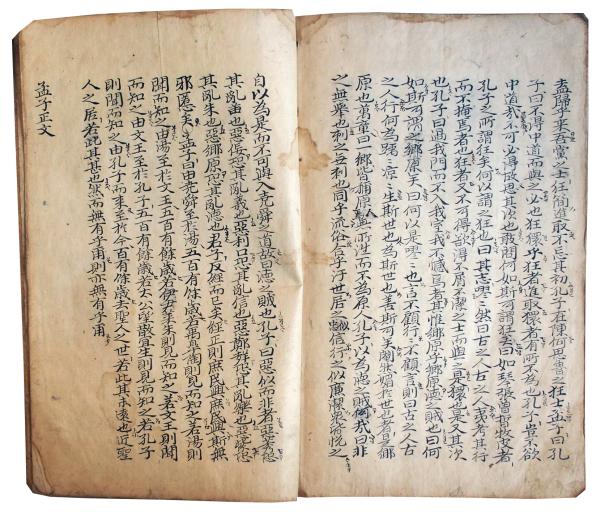 盍歸乎來吾黨之士狂簡進取不忘其初孔子在陳何思魯之狂士孟子曰孔
子曰不得中道而與之必也狂獧乎狂者進取獧者有所不為也孔子豈不欲
中道哉不可必得故思其次也敢問何如斯可謂狂矣曰如琴張曾晳牧皮者
孔子之所謂狂矣何以謂之狂也曰其志嘐〻然曰古之人古之人夷考其行
而不掩焉者也狂者又不可得欲得不屑不潔之士而與之是獧也是又其次
也孔子曰過我門而不入我室我不憾焉者其惟鄉原乎鄉原德之賊也曰何
如斯可謂之鄉原矣曰何以是嘐〻也言不顧行〻不顧言則曰古之人古
之人行何為踽〻涼〻生斯世也為斯世也善斯可矣閹然媚於世也者是鄉
原也萬章曰一鄉皆稱原焉無所往而不為原人孔子以為德之賊何哉曰非
之無舉也刺之無刺也同乎流俗合乎汙世居之似忠信行之似廉潔眾皆悅之
自以為是而不可與入堯舜之道故曰德之賊也孔子曰惡似而非者惡莠恐
其亂苗也惡佞恐其亂義也惡利口恐其亂信也惡鄭聲恐其亂樂也惡紫恐
其亂朱也惡鄉原恐其亂德也君子反經而已矣經正則庶民興庶民興斯無
邪慝矣孟子曰由堯舜至於湯五百有餘歲若禹皋陶則見而知之若湯則
聞而知之由湯至於文王五百有餘歲若伊尹萊朱則見而知之若文王則聞
而知之由文王至於孔子五百有餘歲若太公望散宜生則見而知之若孔子
則聞而知之由孔子而來至於今百有餘歲去聖人之世若此其未遠也近聖
人之居若此其甚也然而無有乎爾則亦無有乎爾
孟子正文